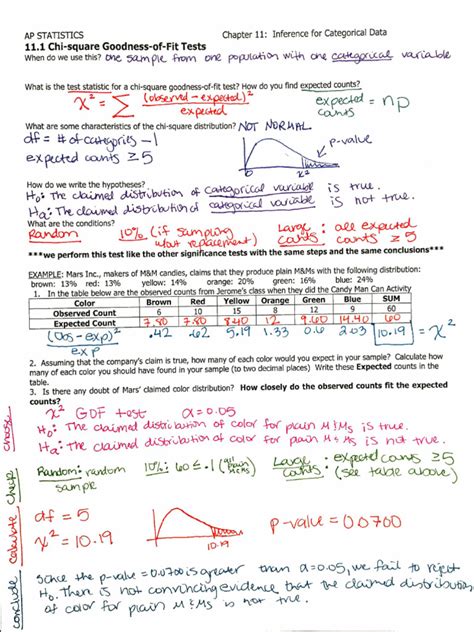 AP STATISTICS Chapter 11: Inference for Categorical Data
11.1 Chi-square Goodness-of-Fit Tests
When do we use this? One sample from one population with one categorical variable
What is the test statistic for a chi-square goodness-of-fit test? How do you find expected counts?
χ² = Σ (observed - expected)² / expected expected counts = np
What are some characteristics of the chi-square distribution? NOT NORMAL
df = # of categories - 1
expected counts ≥ 5
p-value
0 χ²
How do we write the hypotheses?
H₀: The claimed distribution of categorical variable is true.
Hₐ: The claimed distribution of categorical variable is not true.
What are the conditions?
Random 10% (if sampling w/out replacement) Large counts : all expected counts ≥ 5
***we perform this test like the other significance tests with the same steps and the same conclusions***
EXAMPLE: Mars Inc., makers of M&M candies, claims that they produce plain M&Ms with the following distribution:
brown: 13% red: 13% yellow: 14% orange: 20% green: 16% blue: 24%
1. In the table below are the observed counts from Jerome's class when they did the Candy Man Can Activity
Color Brown Red Yellow Orange Green Blue SUM
Observed Count 6 10 15 8 12 9 60
Expected Count 7.80 7.80 8.40 12 9.60 14.40 60
(Obs - exp)² / exp .42 .62 5.19 1.33 0.6 2.03 10.19 = χ²
2. Assuming that the company's claim is true, how many of each color would you expect in your sample? Calculate how
many of each color you should have found in your sample (to two decimal places) Write these Expected counts in the
table.
3. Is there any doubt of Mars' claimed color distribution? How closely do the observed counts fit the expected
counts?
choose
χ² GOF test α = 0.05
H₀: The claimed distribution of color for plain M&Ms is true.
Hₐ: The claimed distribution of color for plain M&Ms is not true.
check
Random: random sample 10%: 60 ≤ .1 (all plain M&Ms) Large counts : expected counts ≥ 5 (see table above)
calculate
df = 5
χ² = 10.19
10.19
p-value = 0.0700
conclude
Since the p-value = 0.0700 is greater than α = 0.05, we fail to reject
H₀. There is not convincing evidence that the claimed distribution
of color for plain M&Ms is not true.